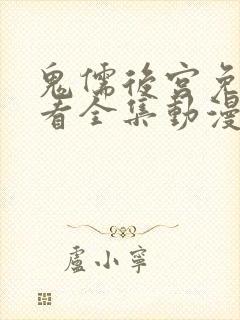 鬼儒後宮免
看全集動漫
盧小寧